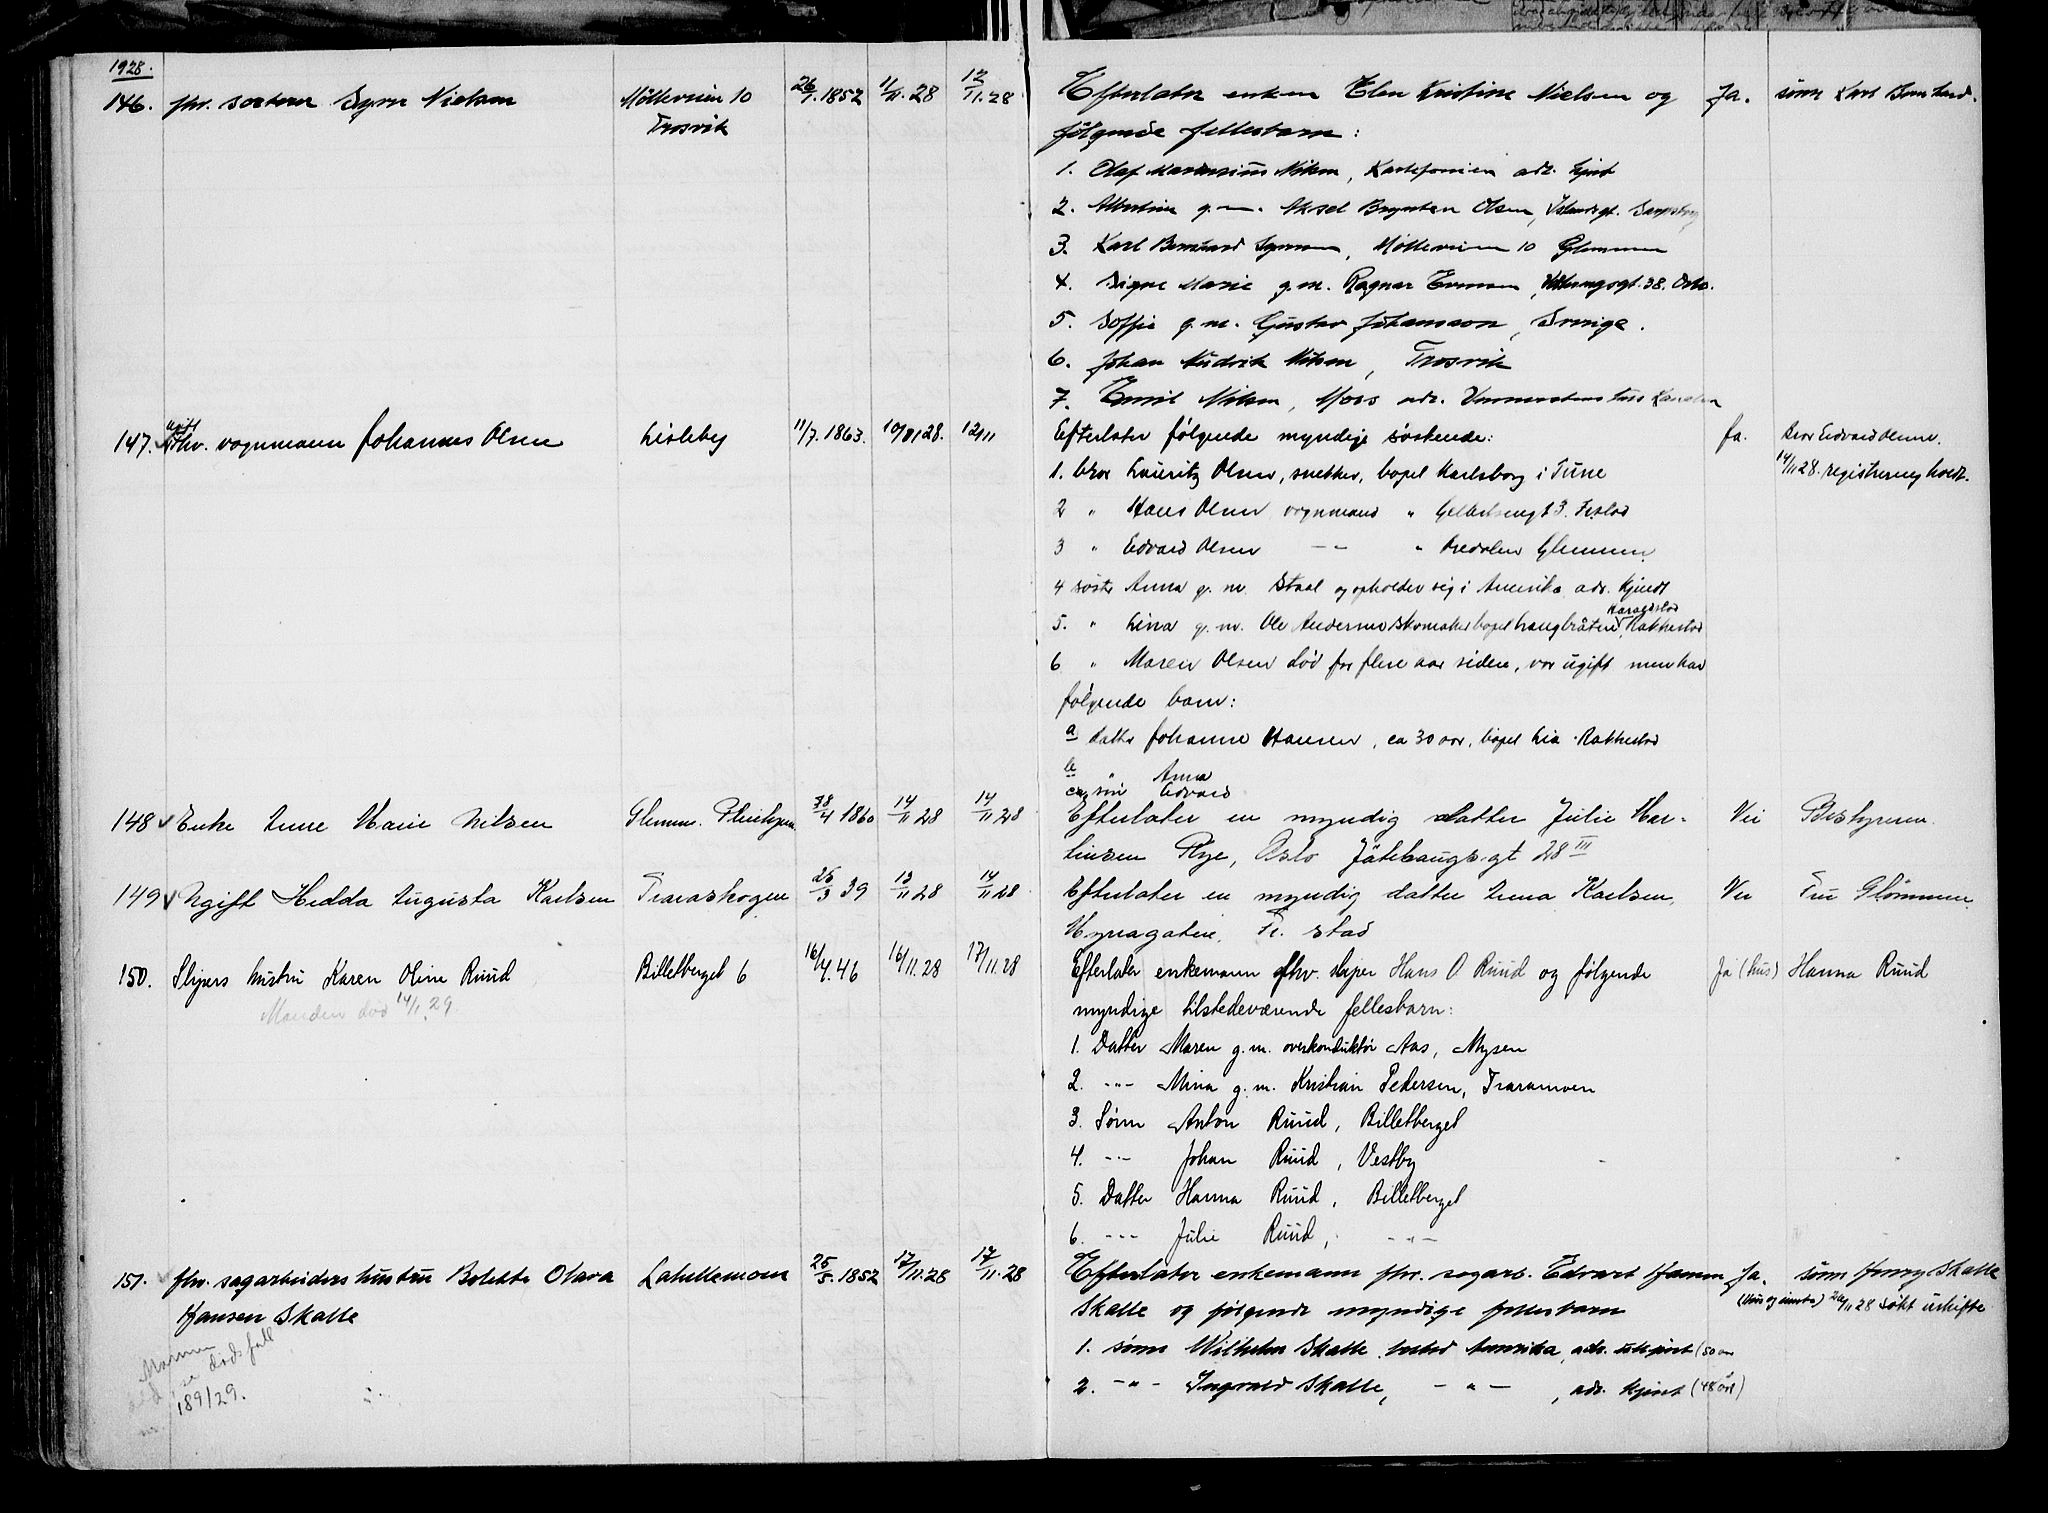 1928.
146. fhv. sorterer Syver Nielsen Mölleveien 10 26/1.1852 11/11.28 12/11.28 Efterlater enken Elen Kristine Nielsen og Ja. sönn Karl Bernhard.
Trosvik følgende fellesbarn:
1. Olaf Nilsen, adr. kjent
2. Albertine g.m. Aksel Olsen, Sarpsborg
3. Karl Bernhard Syversen, Mölleveien 10 Glemmen
4. Signe Marie g.m. Ragnar 38. Oslo.
5. Soffie g.m. Gustav Johansson, Sverige.
6. Johan Ludvik Nilsen, Trosvik
7. Emil Nilsen, Moss adr.
147. ugift fhv. vognmann Johannes Olsen Lisleby 11/7.1863. 10/11 28. 12/11 Efterlater følgende myndige söskende: Ja. Bror Edvard Olsen.
1. bror Lauritz Olsen, snekker, bopel Karlsborg i Tune 14/11 28. registrering holdt.
2 " Hans Olsen vognmand " 3. Fr.stad
3 " Edvard Olsen -"- " Glemmen
4 søster Anna g.m. Staal og opholder sig i Amerika adr. kjendt
5. " Lina g.m. Ole Andersen skomaker bopel Haugbråten, Rakkestad
6 " Maren Olsen død for flere aar siden, var ugift men har
følgende barn:
a datter Johanne Hansen, ca 30 aar, bopel Lia Rakkestad
b " Anna
c søn Edvard
148 Enke Marie Nilsen Glemm. Pleiehjem 28/4 1860 14/11 28 14/11 28 Efterlater en myndig datter Julie Mar-
tinsen Rye, Oslo 28 III Nei Bestyreren.
149 Ugift Hedda Augusta Karlsen Traraskogen 25/3 39 13/11 28 14/11 28 Efterlater en myndig datter Karlsen, Nei Fru Glømmen.
Fr. stad
150. Slipers hustru Karen Oline Ruud Billetberget 6 16/4.46 16/11.28 17/11.28 Efterlater enkemann fhv. sliper Hans O Ruud og følgende Ja (hus) Hanna Ruud
Manden død 14/1.29 myndige tilstedeværende fellesbarn:
1. Datter Maren g.m. overkonduktør Aas, Mysen
2. -"- Mina g.m. Kristian Pedersen, Traramoen
3. Sønn Anton Ruud, Billetberget
4. -"- Johan Ruud, Vestby
5. Datter Hanna Ruud, Billetberget
6. -"- Julie Ruud, -"-
151. fhv. sagarbeiders hustru Bolette Olava Lahellemoen 25/5.1852 17/11.28 17/11.28 Efterlater enkemann fhv. sagarb. Edvart Hansen Ja. sönn Henry Skalle
Hansen Skalle Skalle og følgende myndige fellesbarn (hus og innbo) 20/11 28 søkt uskifte
1. sönn Wilhelm Skalle Amerika, adr. (50 aar
2. -"- Ingvald Skalle, -"-, adr. kjent (48 år)
Mannen
se dødsfall
189/29.